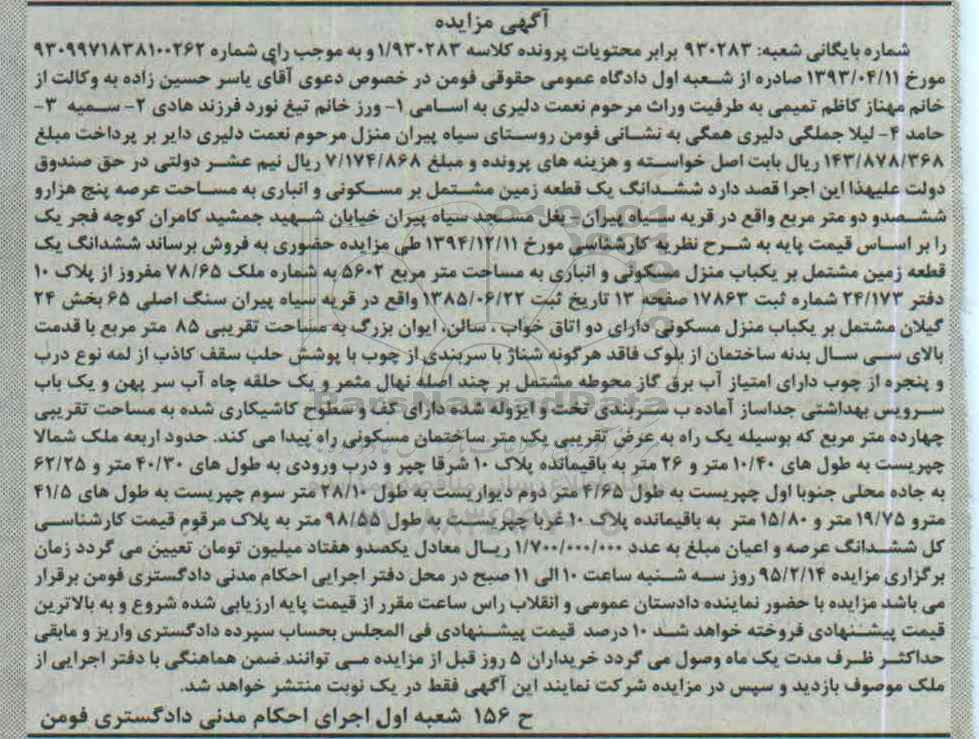 آگهی مزایده
شماره بایگانی شعبه: ۹۳۰۲۸۳ برابر محتویات پرونده کلاسه ۱/۹۳۰۲۸۳ و به موجب رای شماره ۹۳۰۹۹۷۱۸۳۸۱۰۰۲۶۲
مورخ ۱۳۹۳/۰۴/۱۱ صادره از شعبه اول دادگاه عمومی حقوقی فومن در خصوص دعوی آقای یاسر حسین زاده به وکالت از
خانم مهناز کاظم تمیمی به طرفیت وراث مرحوم نعمت دلیری به اسامی ۱- ورز خانم تیغ نورد فرزند هادی ۲- سمیه ۳-
حامد ۴- لیلا جملگی دلیری همگی به نشانی فومن روستای سیاه پیران منزل مرحوم نعمت دلیری دایر بر پرداخت مبلغ
۱۴۳/۸۷۸/۳۶۸ ریال بابت اصل خواسته و هزینه های پرونده و مبلغ ۷/۱۷۴/۸۶۸ ریال نیم عشر دولتی در حق صندوق
دولت علیهذا این اجرا قصد دارد ششدانگ یک قطعه زمین مشتمل بر مسکونی و انباری به مساحت عرصه پنج هزارو
ششصدو دو متر مربع واقع در قریه سیاه پیران- بغل مسجد سیاه پیران خیابان شهید جمشید کامران کوچه فجر یک
را بر اساس قیمت پایه به شرح نظریه کارشناسی مورخ ۱۳۹۴/۱۲/۱۱ طی مزایده حضوری به فروش برساند ششدانگ یک
قطعه زمین مشتمل بر یکباب منزل مسکونی و انباری به مساحت متر مربع ۵۶۰۲ به شماره ملک ۷۸/۶۵ مفروز از پلاک ۱۰
دفتر ۲۴/۱۷۳ شماره ثبت ۱۷۸۶۳ صفحه ۱۳ تاریخ ثبت ۱۳۸۵/۰۶/۲۲ واقع در قریه سیاه پیران سنگ اصلی ۶۵ بخش ۲۴
گیلان مشتمل بر یکباب منزل مسکونی دارای دو اتاق خواب ، سالن، ایوان بزرگ به مساحت تقریبی ۸۵ متر مربع با قدمت
بالای سی سال بدنه ساختمان از بلوک فاقد هرگونه شناژ با سربندی از چوب با پوشش حلب سقف کاذب از لمه نوع درب
و پنجره از چوب دارای امتیاز آب برق گاز محوطه مشتمل بر چند اصله نهال مثمر و یک حلقه چاه آب سر پهن و یک باب
سرویس بهداشتی جداساز آماده ب سربندی تخت و ایزوله شده دارای کف و سطوح کاشیکاری شده به مساحت تقریبی
چهارده متر مربع که بوسیله یک راه به عرض تقریبی یک متر ساختمان مسکونی راه پیدا می کند. حدود اربعه ملک شمالا
چپریست به طول های ۱۰/۴۰ متر و ۲۶ متر به باقیمانده پلاک ۱۰ شرقا چپر و درب ورودی به طول های ۴۰/۳۰ متر و ۶۲/۲۵
به جاده محلی جنوبا اول چپریست به طول ۴/۶۵ متر دوم دیواریست به طول ۲۸/۱۰ متر سوم چپریست به طول های ۴۱/۵
مترو ۱۹/۷۵ متر و ۱۵/۸۰ متر به باقیمانده پلاک ۱۰ غربا چپریست به طول ۹۸/۵۵ متر به پلاک مرقوم قیمت کارشناسی
کل ششدانگ عرصه و اعیان مبلغ به عدد ۱/۷۰۰/۰۰۰/۰۰۰ ریال معادل یکصدو هفتاد میلیون تومان تعیین می گردد زمان
برگزاری مزایده ۹۵/۲/۱۴ روز سه شنبه ساعت ۱۰ الی ۱۱ صبح در محل دفتر اجرایی احکام مدنی دادگستری فومن برقرار
می باشد مزایده با حضور نماینده دادستان عمومی و انقلاب راس ساعت مقرر از قیمت پایه ارزیابی شده شروع و به بالاترین
قیمت پیشنهادی فروخته خواهد شد ۱۰ درصد قیمت پیشنهادی فی المجلس بحساب سپرده دادگستری واریز و مابقی
حداکثر ظرف مدت یک ماه وصول می گردد خریداران ۵ روز قبل از مزایده می توانند ضمن هماهنگی با دفتر اجرایی از
ملک موصوف بازدید و سپس در مزایده شرکت نمایند این آگهی فقط در یک نوبت منتشر خواهد شد.
ح ۱۵۶ شعبه اول اجرای احکام مدنی دادگستری فومن
ParsNamadData